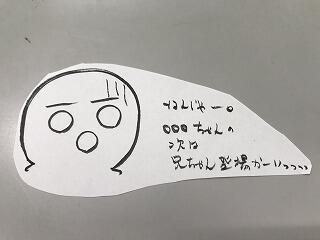 なんじゃー。
○○○ちゃんの
次は
兄ちゃん登場かーいっっっ